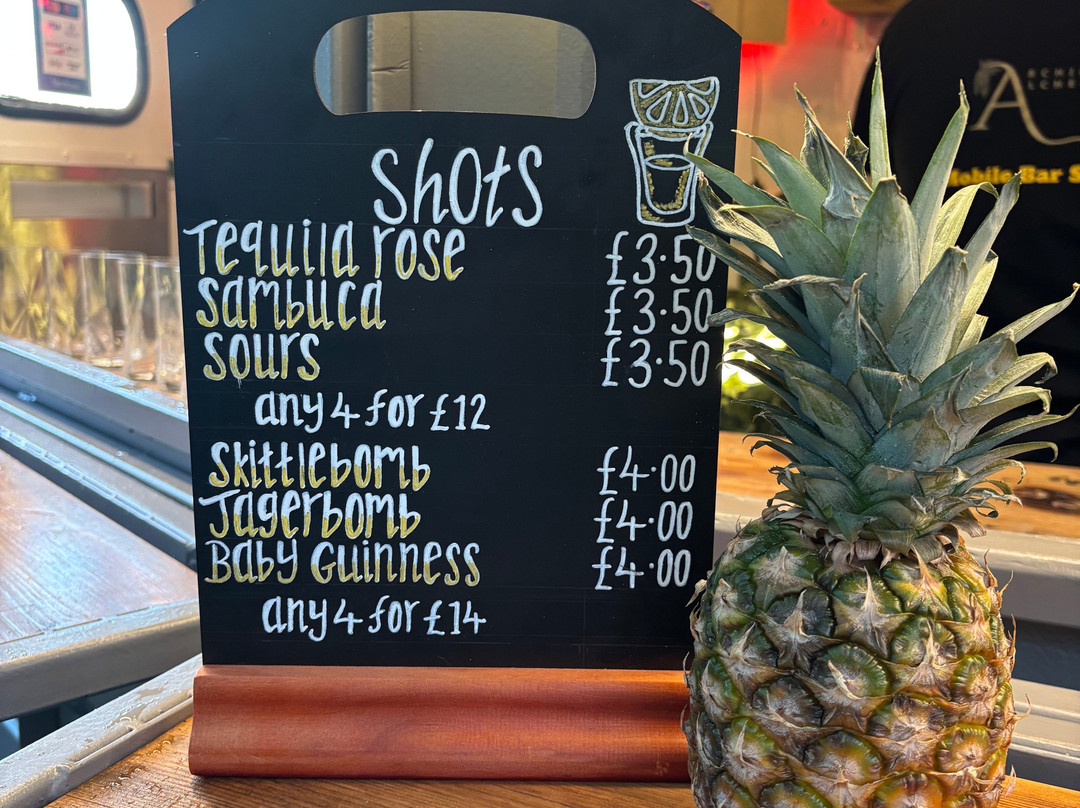 Shots
Tequila rose £3.50
Sambuca £3.50
Sours £3.50
any 4 for £12
Skittlebomb £4.00
Jagerbomb £4.00
Baby Guinness £4.00
any 4 for £14
Mobile Bar